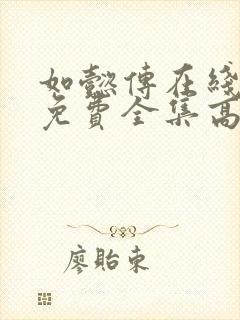 如懿傳在綫
免費全集高
廖貽東